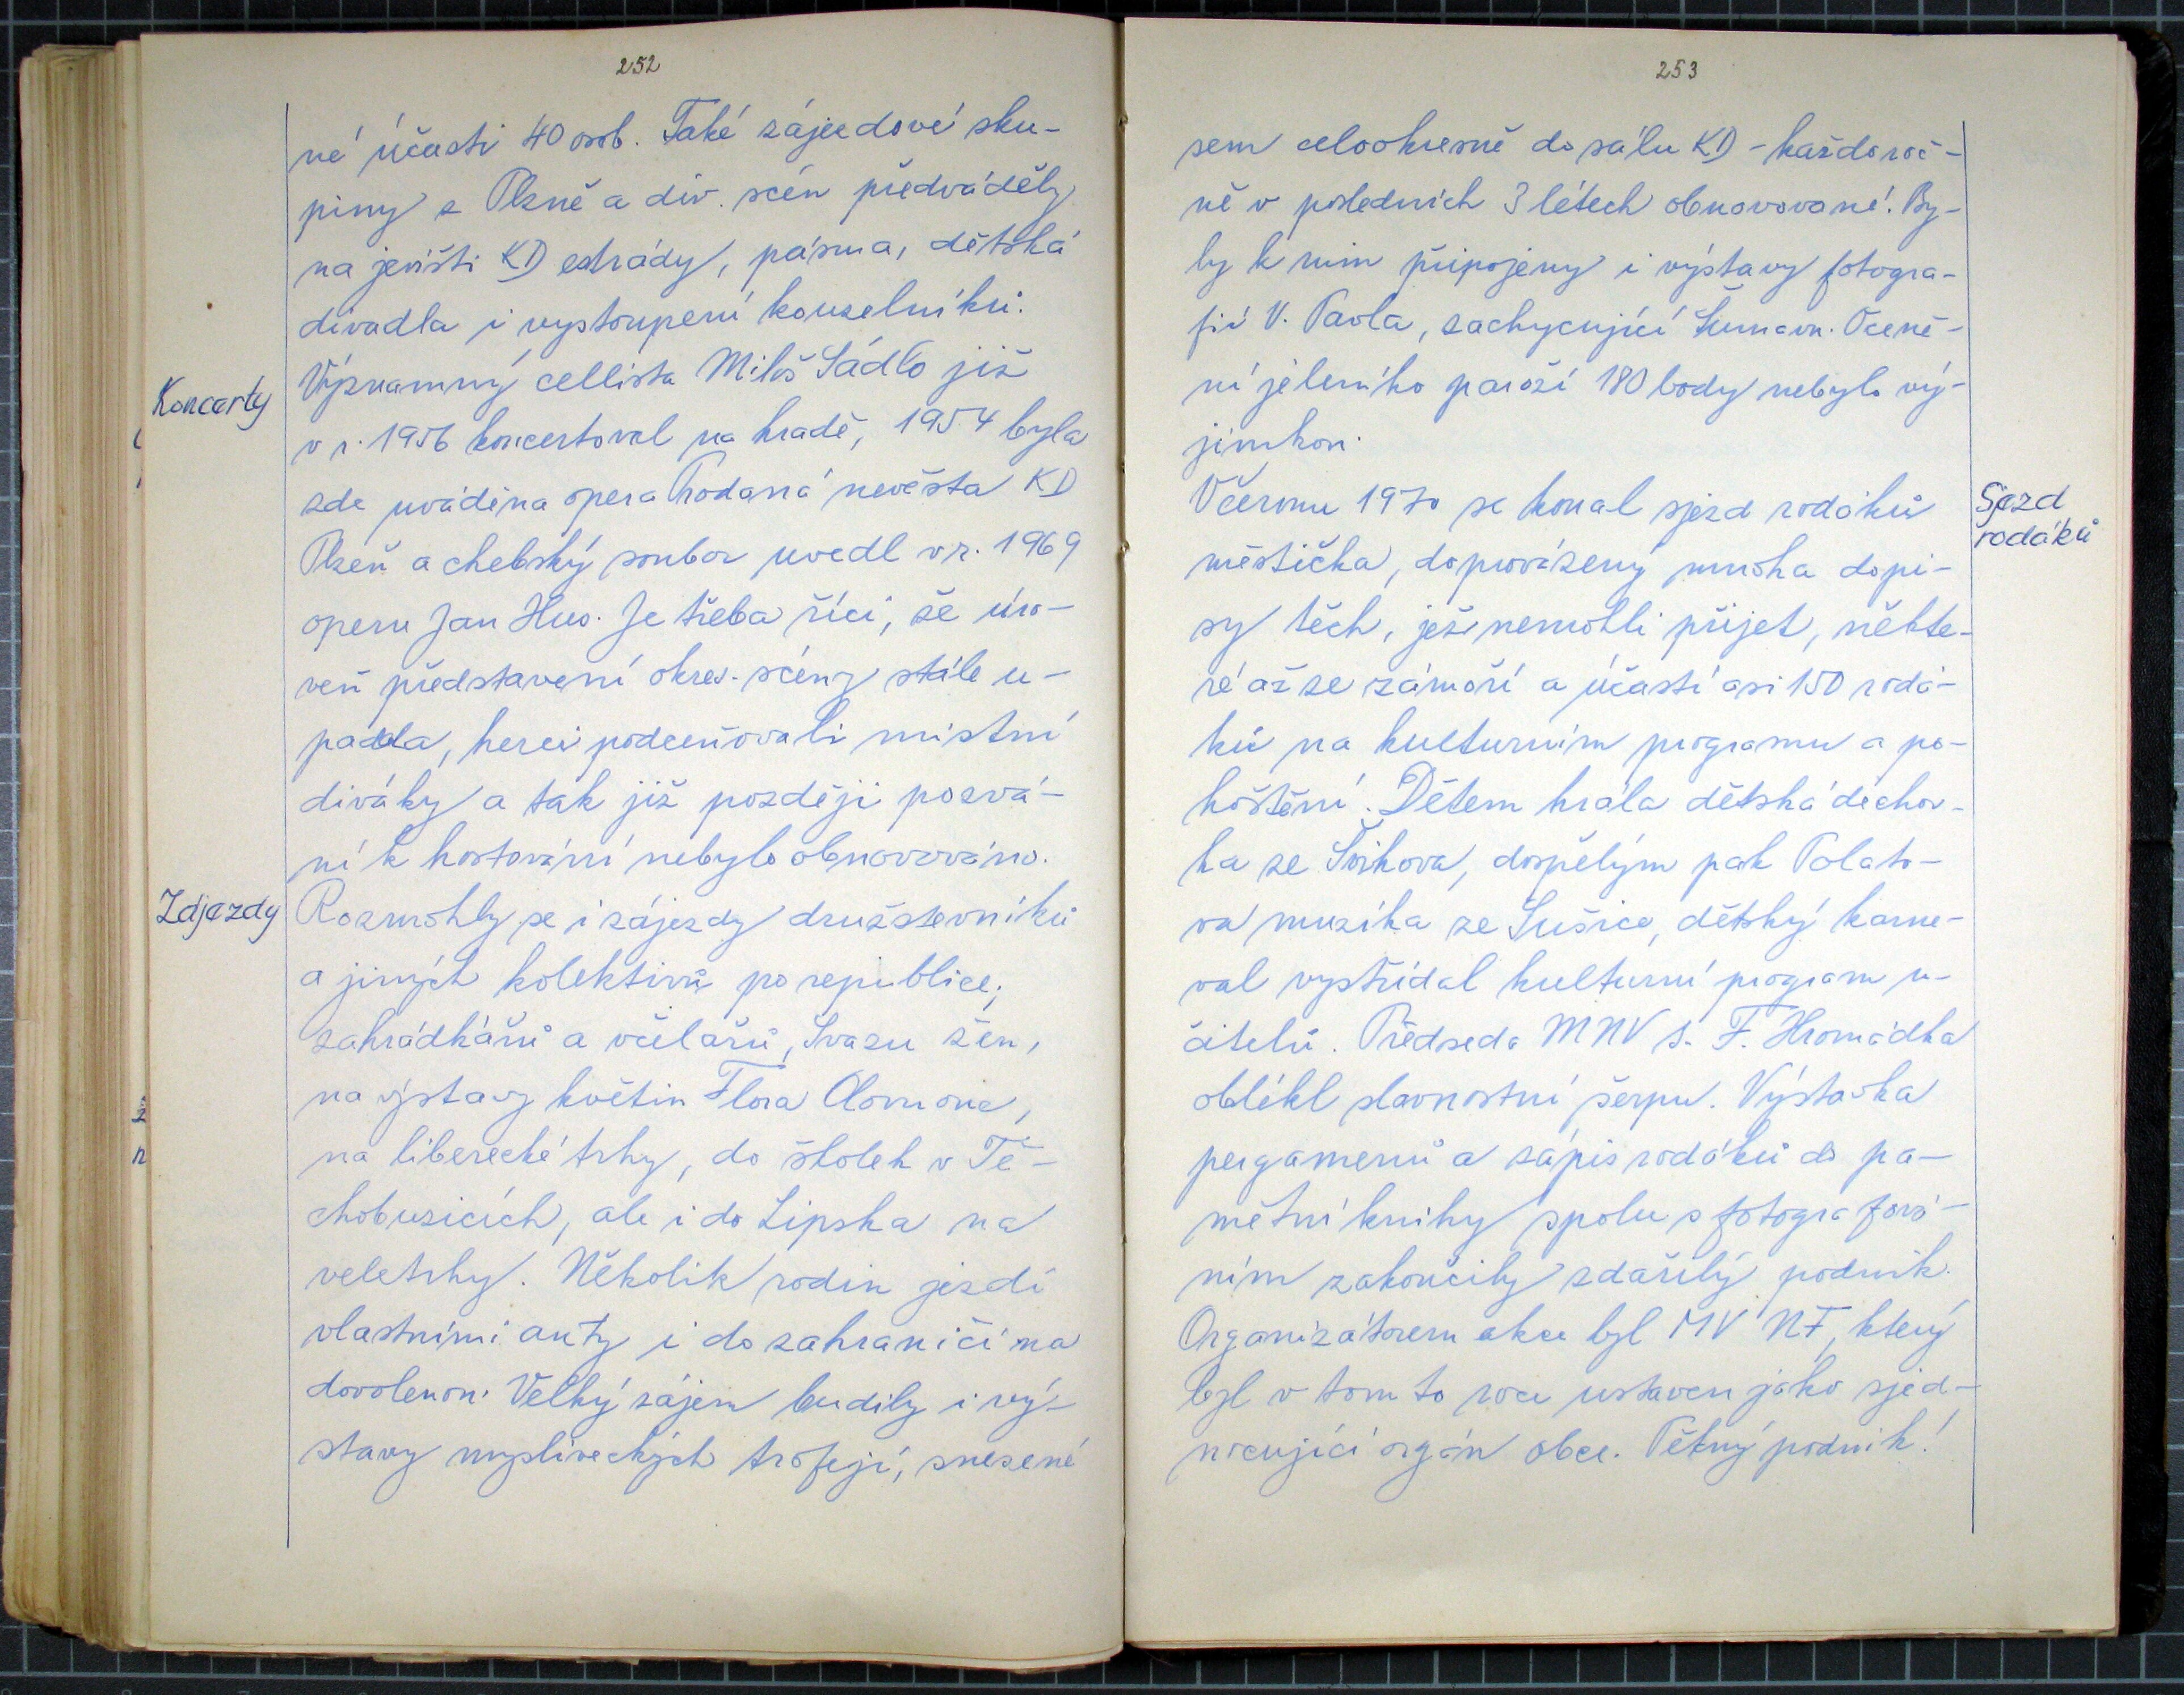 252
né účasti 40 osob. Také zájezdové sku-
piny z Plzně a div. scén předváděly
na jevišti KD estrády, pásma, dětská
divadla i vystoupení kouzelníků.
Koncerty
Významný cellista Miloš Sádlo již
v r. 1956 koncertoval na hradě, 1954 byla
zde uváděna opera Prodaná nevěsta KD
Plzeň a chebský soubor uvedl v r. 1969
operu Jan Hus. Je třeba říci, že úro-
veň představení okres. scény stále u-
padala, herci podceňovali místní
diváky a tak již později pozvá-
ní k hostování nebylo obnovováno.
Zájezdy
Rozmohly se i zájezdy družstevníků
a jiných kolektivů po republice;
zahrádkářů a včelařů, Svazu žen,
na výstavy květin Flora Olomouc,
na liberecké trhy, do školek v Tě-
chobuzicích, ale i do Lipska na
veletrhy. Několik rodin jezdí
vlastními auty i do zahraničí na
dovolenou. Velký zájem budily i vý-
stavy mysliveckých trofejí, snesené
253
sem celookresně do sálu KD - každoroč-
ně v posledních 3 létech obnovované. By-
ly k nim připojeny i výstavy fotogra-
fií V. Pavla, zachycující Šumavu. Oceně-
ní jeleního paroží 180 body nebylo vý-
jimkou.
Sjezd
rodáků
V červnu 1970 se konal sjezd rodáků
městečka, doprovázený mnoha dopi-
sy těch, jež nemohli přijet, někte-
ré až ze zámoří a účastí asi 150 rodá-
ků na kulturním programu a po-
hoštění. Dětem hrála dětská dechov-
ka ze Švihova, dospělým pak Polato-
va muzika ze Sušice, dětský karne-
val vystřídal kulturní program u-
čitelů. Předseda MNV s. F. Hromádka
oblékl slavnostní šerpu. Výstavka
pergamenů a zápis rodáků do pa-
mětní knihy spolu s fotografová-
ním zakončily zdařilý podnik.
Organizátorem akce byl MV NF, který
byl v tomto roce ustaven jako sjed-
nocující orgán obce. Pěkný podnik!